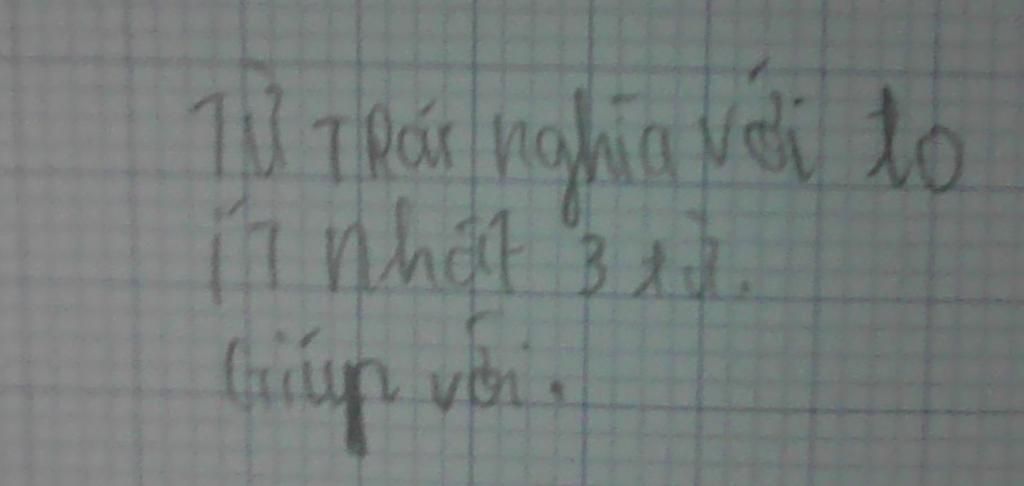 Từ Trái nghĩa với to
ít nhất 3 từ.
Giúp với.